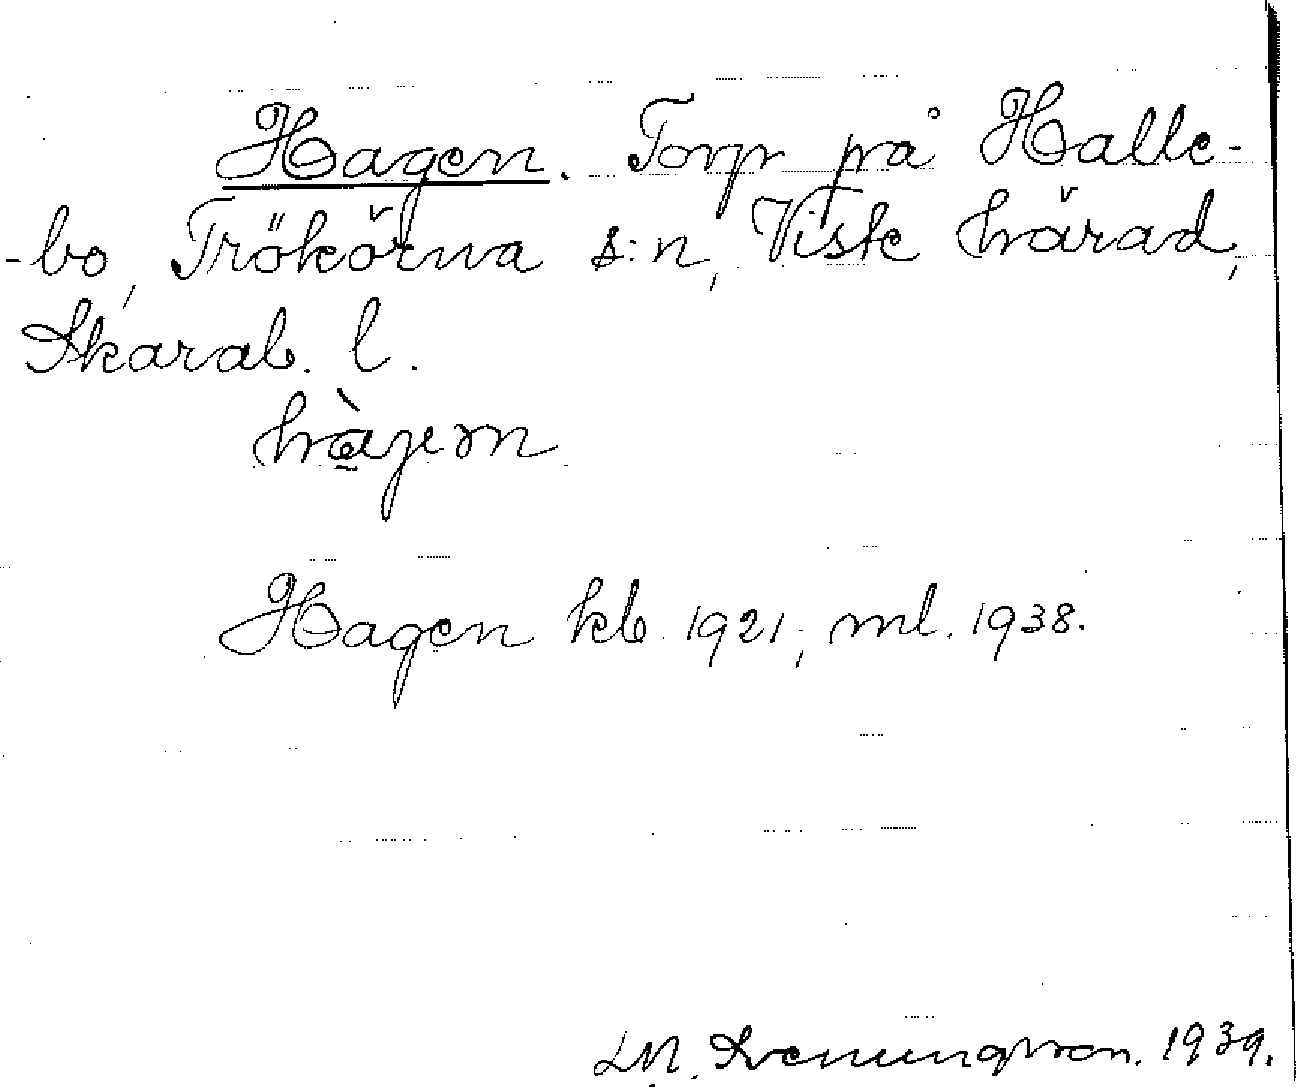 Hagen. Torp på Halle-
-bo, Trökörna s:n, Viste härad,
Skarab. l.
hàgen
Hagen kb 1921, ml. 1938.
1939.